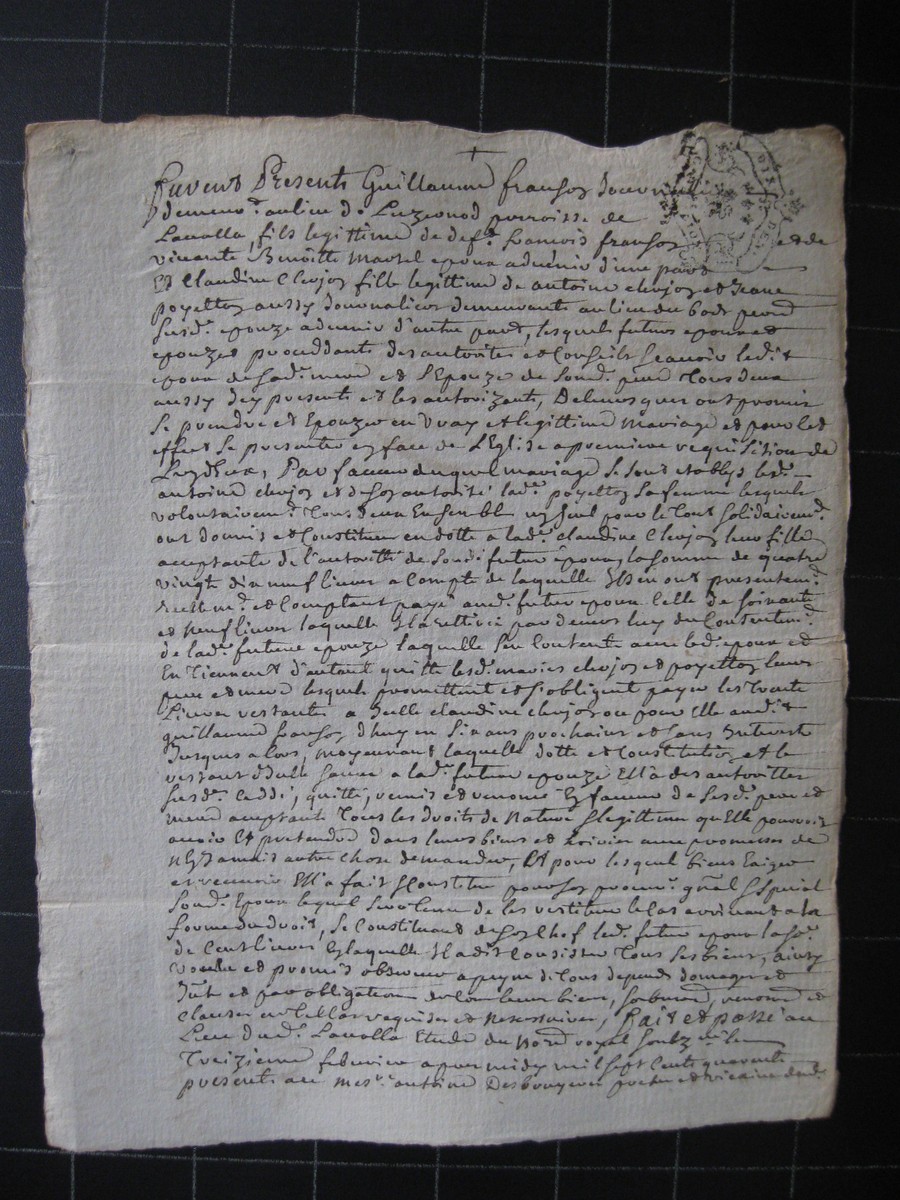 furent Presents Guillaume françon Journalier
demeurᵗ au lieu de Luzernod parroisse de
Lavalla, fils legittime de defᵗ francois françon et de
vivante Benoitte Martel epoux advenir d'une part
Et Claudine Clerjon fille legittime de antoine clerjon et Jeane
poyetton aussy Journaliers demeurants au lieu du
susd. epouze advenir d'autre part, lesquels futurs epoux et
epouze proceddants des autorités et Conseils sçavoir led.t
epoux de sad. mere et l'Epouze de sond. pere tous deux
aussy icy presents et les autorizants, De leurs gré ont promis
se prendre et Epouzer en vray et legittime Mariage et pour led.
effect se presenter en face de l'Eglise a premiere requisition de
l'un d'eux, Par faveur duquel mariage se sont etablys led.
antoine clerjon et de son autorité lad. poyetton sa femme lesquels
volontairemᵗ tous deux Ensemble un seul pour le tout solidairemᵗ
ont donnés et Constitué en dotte a lad. claudine Clerjon leur fille
acceptante de l'autoritté de sond. futur epoux, la somme de quatre
vingt dix neuf livres a compte de laquelle Ils en ont presentemᵗ
reellemᵗ et Comptant payé aud. futur epoux Celle de soixante
et neuf livres laquelle Il a rettiré par devers luy du Consentemᵗ
de lad. future epouze laquelle s'en Contente avec led. epoux et
En tiennent d'autant quitte lesd. mariés clerjon et poyetton leurs
pere et mere lesquels promettent et s'obligent payer les trente
Livres restants a Icelle claudine clerjon ou pour elle aud.t
guillaume françon d'huy en six ans prochains et sans Interest
Jusques alors, moyennant laquelle dotte et Constitution et le
restant d'Icelle sauve a lad. future epouze Ell'a des autorittés
susd. ceddé, quitté, remis et renoncé En faveur de sesd. pere et
mere acceptants tous les droits de Nature & legittime qu'Elle pourroit
avoir Et pretendre dans leurs biens et avec promesse de
n'En Jamais autre chose demander, Et pour lesquels biens Exiger
et recevoir Ell'a fait & Constitué pour son procurʳ gñal & special
sond. Epoux lequel sera tenu de les restituer le cas arrivant a la
forme du droit, se Constituant de son Chef led. futur epoux la soᵉ
de Cent livres En laquelle Il a dit Consister tous ses biens, ainsy
voulu et promis observer a peyne de tous depends domages et
Int et par obligation de leurs biens, soubmis, renoncé et
clauses en tel cas requises et Necessaires, fait et passé au
Lieu dud. Lavalla Etude du Nore royal soubzⁿᵉ le
treizieme febvrier apres midy mil sept Cents quarente
presents au Mesʳᵉ antoine Desbruyeres pretre et vicaire dud.